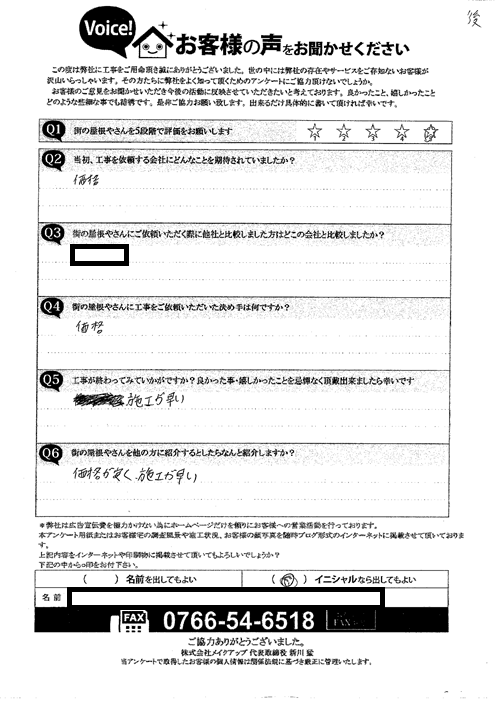 後
Voice!
お客様の声をお聞かせください
この度は弊社に工事をご用命頂き誠にありがとうございました。世の中には弊社の存在やサービスをご存知ないお客様が
沢山いらっしゃいます。その方たちに弊社をよく知って頂くためのアンケートにご協力頂けないでしょうか。
お客様のご意見をお聞かせいただき今後の活動に反映させていただきたいと考えております。良かったこと、嬉しかったこと
どのような些細な事でも結構です。是非ご協力お願い致します。出来るだけ具体的に書いて頂ければ幸いです。
Q1 街の屋根やさんを5段階で評価をお願いします
1 2 3 4 5
Q2 当初、工事を依頼する会社にどんなことを期待されていましたか?
価格
Q3 街の屋根やさんにご依頼いただく際に他社と比較しました方はどこの会社と比較しましたか?
Q4 街の屋根やさんに工事をご依頼いただいた決め手は何ですか?
価格
Q5 工事が終わってみていかがですか?良かった事・嬉しかったことを忌憚なく頂戴出来ましたら幸いです
施工が早い
Q6 街の屋根やさんを他の方に紹介するとしたらなんと紹介しますか?
価格が安く、施工が早い
*弊社は広告宣伝費を極力かけない為にホームページだけを頼りにお客様への営業活動を行っております。
本アンケート用紙またはお客様宅の調査風景や施工状況、お客様の顔写真を随時ブログ形式のインターネットに掲載させて頂いておりま
す。
上記内容をインターネットや印刷物に掲載させて頂いてもよろしいでしょうか?
下記の中から○印をお付下さい。
( )名前を出してもよい (○)イニシャルなら出してもよい
名前
FAX 0766-54-6518 FAX
ご協力ありがとうございました。
株式会社メイクアップ 代表取締役 新川 猛
当アンケートで取得したお客様の個人情報は関係法規に基づき厳正に管理いたします。